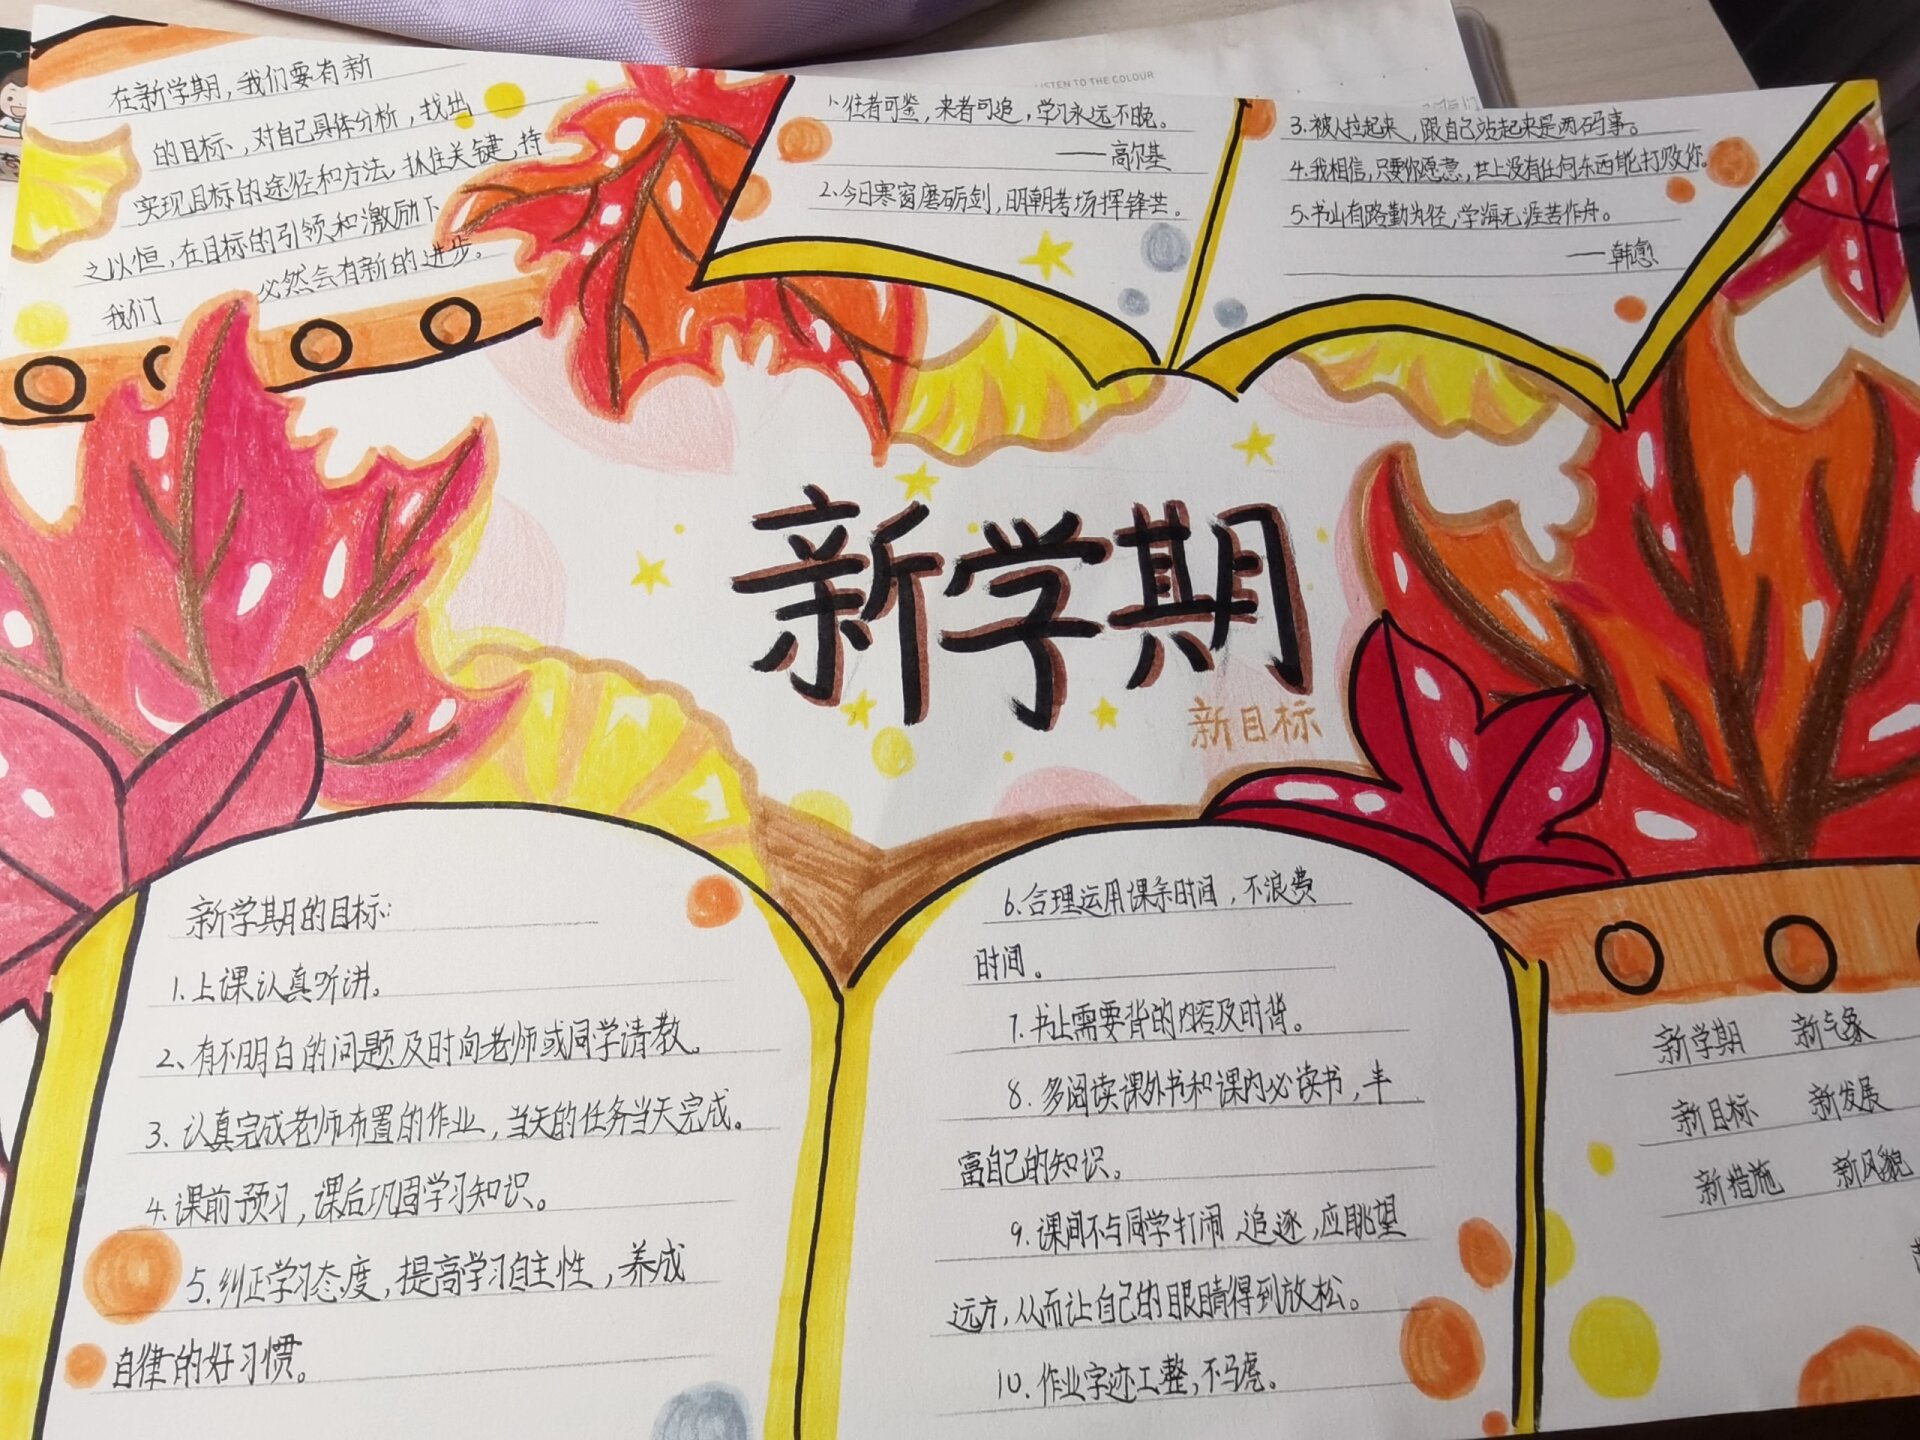 在新学期，我们要有新
的目标，对自己具体分析，找出
实现目标的途径和方法，抓住关键，持
之以恒，在目标的引领和激励下
我们 必然会有新的进步。
LISTEN TO THE COLOUR
1、往者可鉴，来者可追，学习永远不晚。
——高尔基
2、今日寒窗磨砺剑，明朝考场挥锋芒。
3.被人拉起来，跟自己站起来是两码事。
4.我相信，只要你愿意，世上没有任何东西能打败你。
5.书山有路勤为径，学海无涯苦作舟。
——韩愈
新学期
新目标
新学期的目标：
1.上课认真听讲。
2、有不明白的问题及时向老师或同学请教。
3、认真完成老师布置的作业，当天的任务当天完成。
4.课前预习，课后巩固学习知识。
5.纠正学习态度，提高学习自主性，养成
自律的好习惯。
6.合理运用课余时间，不浪费
时间。
7.书上需要背的内容及时背。
8.多阅读课外书和课内必读书，丰
富自己的知识。
9.课间不与同学打闹、追逐，应眺望
远方，从而让自己的眼睛得到放松。
10.作业字迹工整，不马虎。
新学期 新气象
新目标 新发展
新措施 新风貌